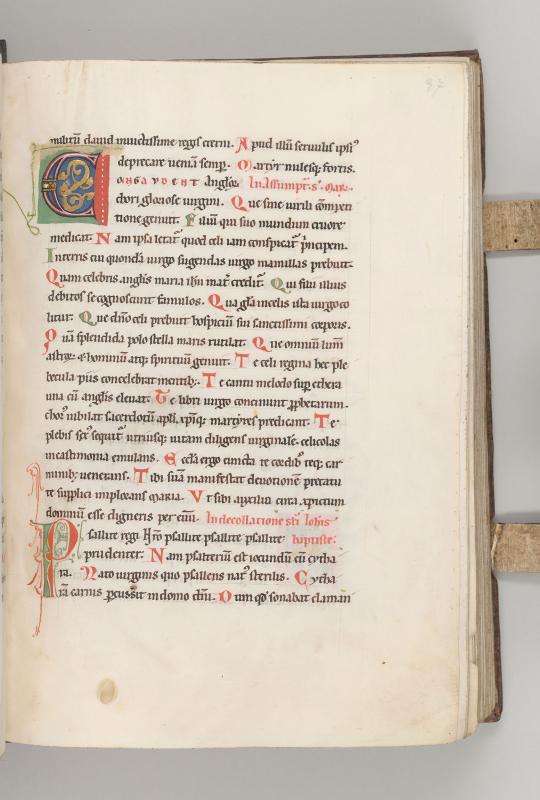 militū david invictissime regis eterni. Apud illū servulis ipsiꝰ
deprecare veniā semp̄. Martyr milesq; fortis.
CONGAVDENT Angloꝝ In Assumpt. s. Marie
chori gloriose virgini. Que sine virili cōmixti
tione genuit. Filiū qui suo mundum cruore
medicat. Nam ipsa letat̄ quod celi iam conspicat̄ p̄ncipem.
In terris cui quondā virgo sugendas virgo mamillas prebuit.
Quam celebris angl̄is maria ih̄u mat̄ credit̄. Qui filii illius
debitos se cognoscunt famulos. Qua gl̄a in celis ista virgo co
litur. Que dn̄o celi prebuit hospiciū sui sanctissimi corporis.
Quā splendida polo stella maris rutilat. Que omniū lum̄
astroꝝ & hominū atq; spirituū genuit. Te celi regina hec ple
becula piis concelebrat mentib;. Te cantu melodo sup ethera
una cū angl̄is elevat. Te libri virgo concinunt ꝓphetarum.
choꝰ iubilat sacerdotū apl̄i xp̄iq; martyres predicant. Te
plebis sexꝰ sequit̄ utriusq; vitam diligens virginalē. celicolas
in castimonia emulans. Eccl̄a ergo cuncta te cordib; teq; car
minib; venerans. Tibi suā manifestat devotionē precatu
te supplici implorans maria. Ut sibi auxilio circa xp̄ictum
dominū esse digneris per evū. In decollatione sc̄i Ioh̄is
Psallite regi nr̄o psallite psallite psallite baptiste.
prudenter. Nam psalteriū est iocundū cū cytha
ra. Nato virginis quo psallens natꝰ sterilis. Cytha
rā carnis percussit in domo dn̄i. Dum qđ sonabat claman